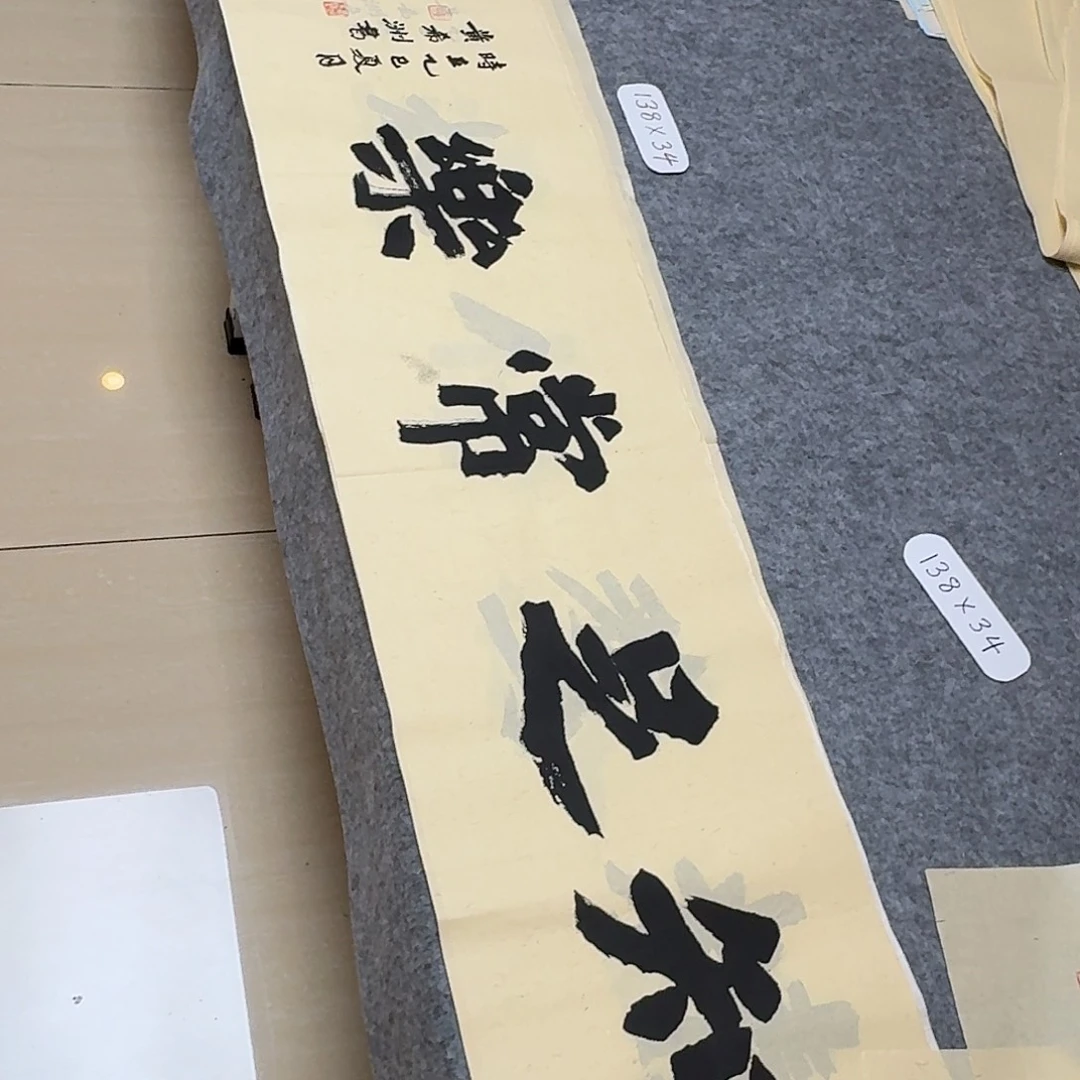 知足常樂
時在乙巳夏月
黃希洲書
138×34
138×34